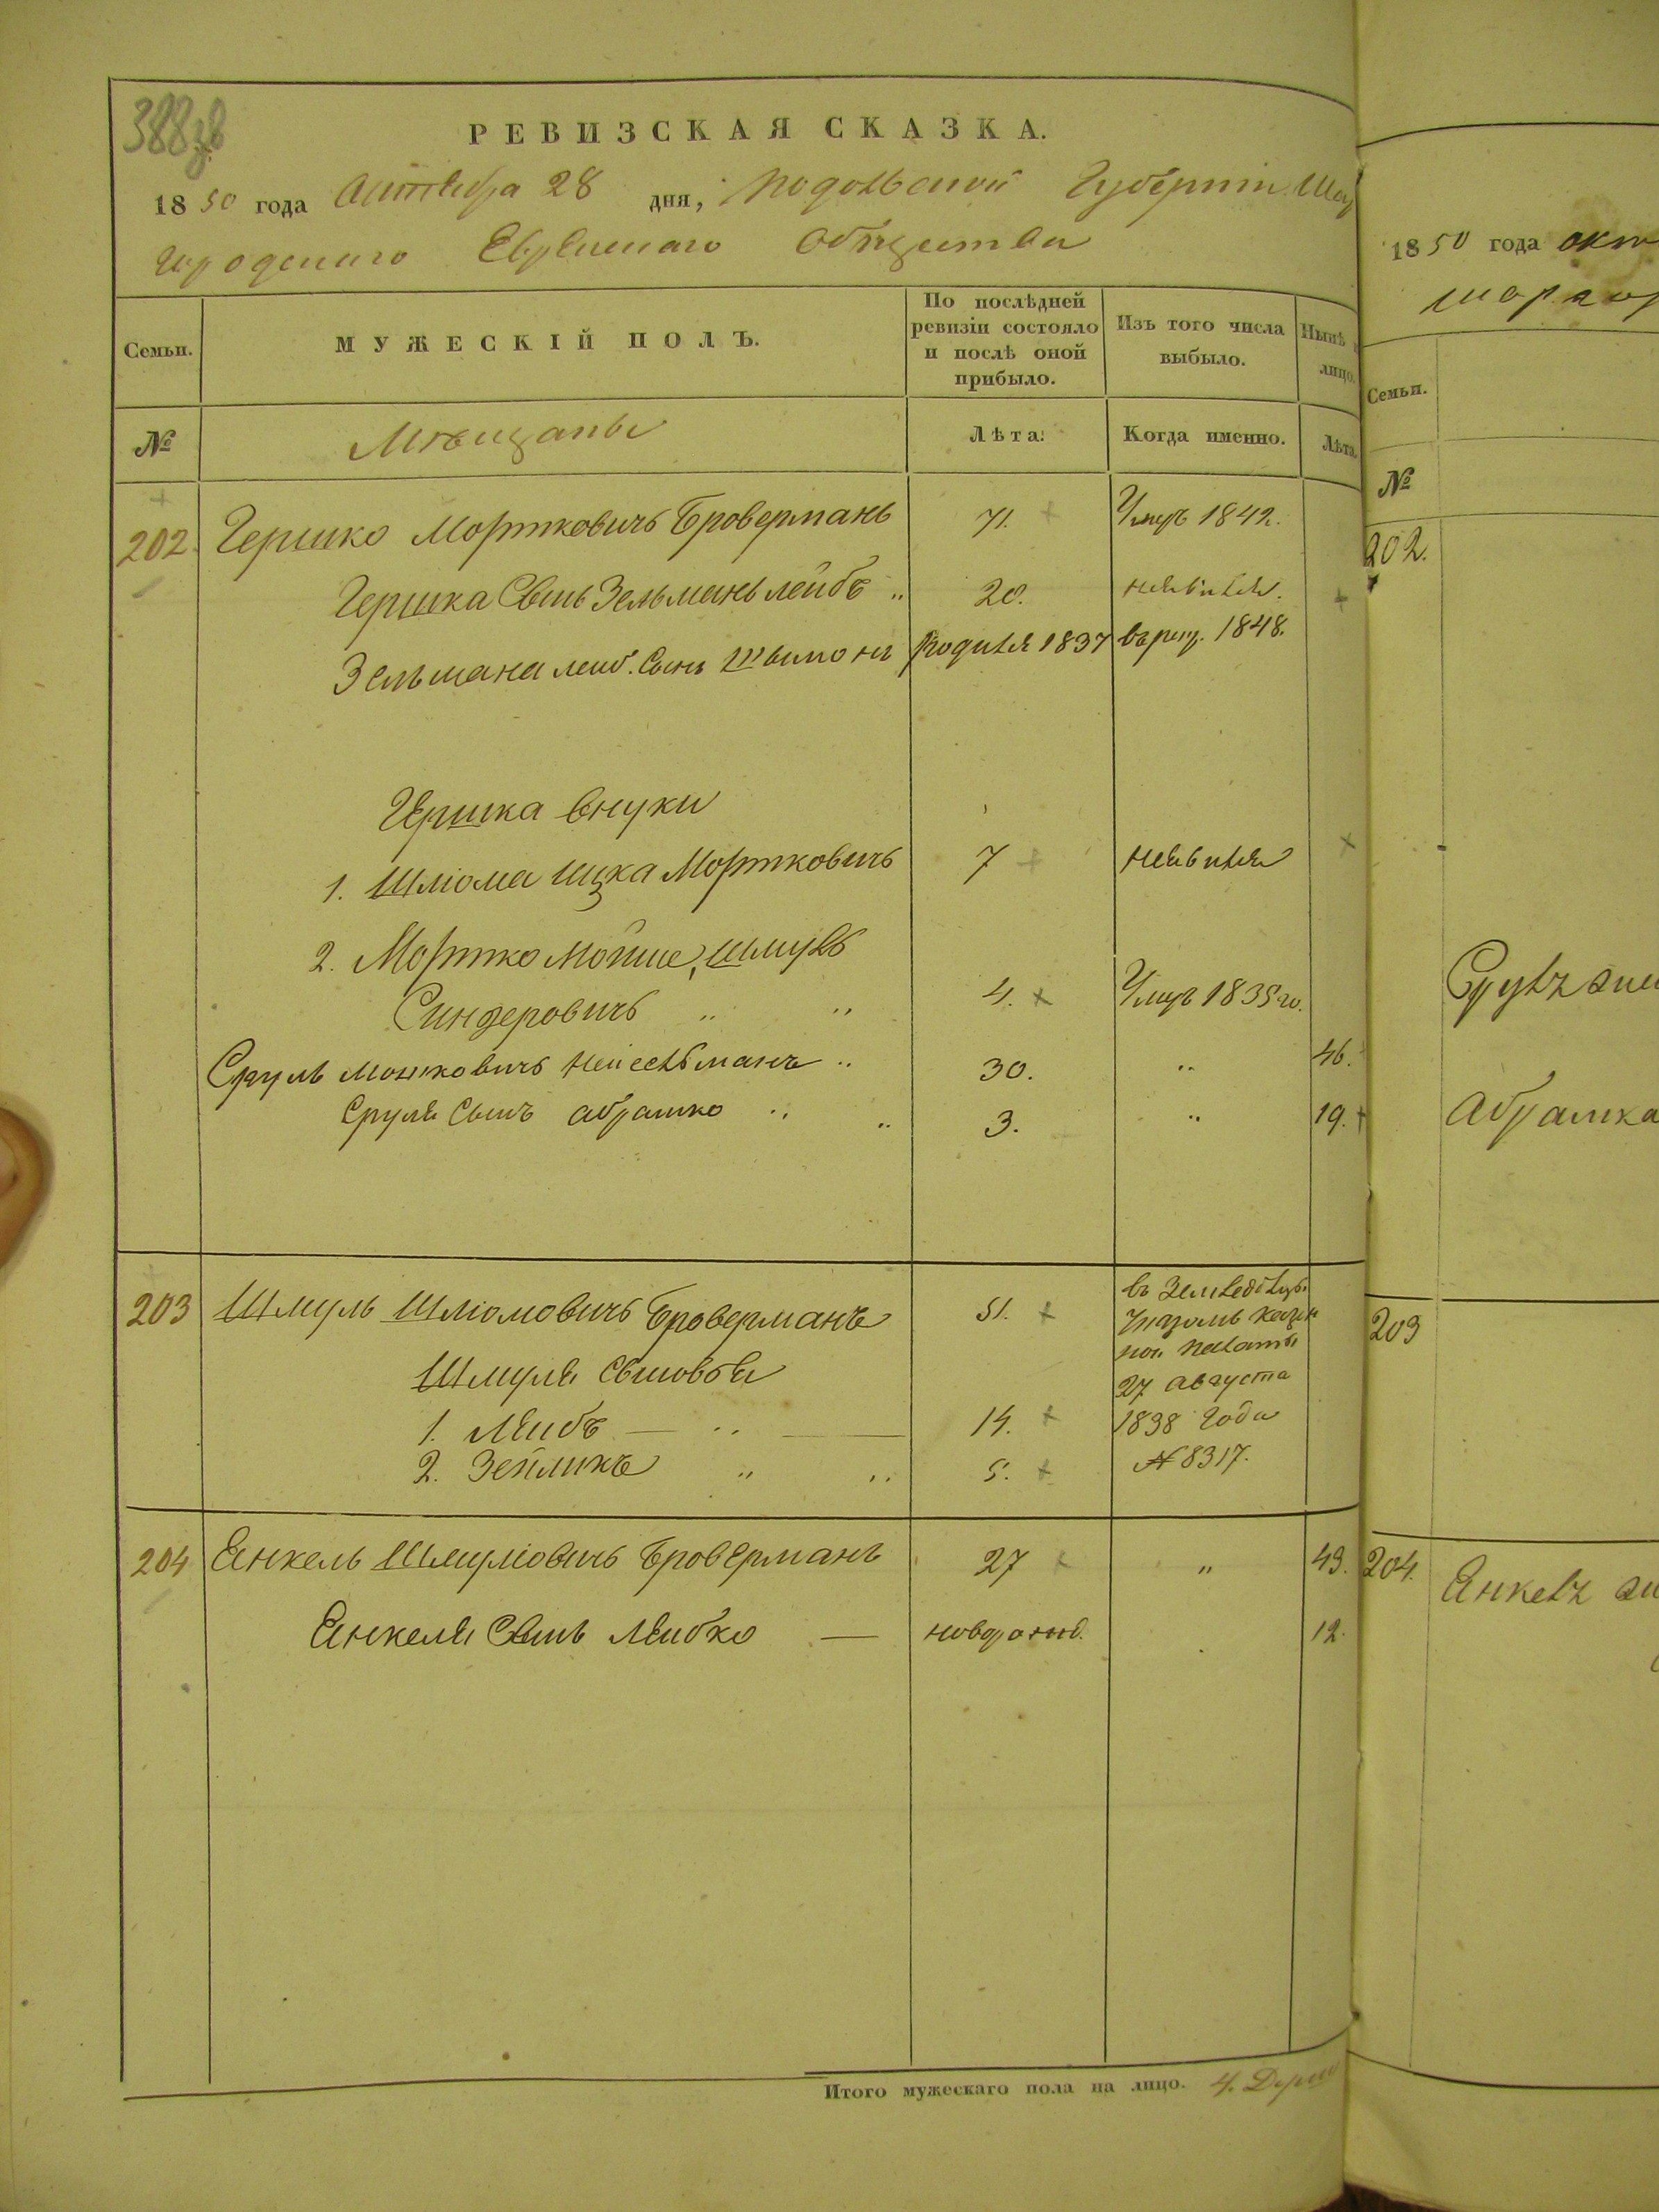 388 зв
РЕВИЗСКАЯ СКАЗКА.
1850 года Октября 28 дня, Подольской Губерніи Шар
городскаго Еврейскаго Общества
Семьи.
МУЖЕСКІЙ ПОЛЪ.
По послѣдней ревизіи состояло и послѣ оной прибыло.
Изъ того числа выбыло.
Нынѣ
лицо.
№
Мѣщане
Лѣта.
Когда именно.
Лѣта.
202. Гершко Мортковичъ Броверманъ 71. Умеръ 1842.
Гершка Сынъ Зельманъ Лейбъ 20. неявился.
Зельмана Лейб. Сынъ Шимонъ родился 1837 въ рец. 1848.
Гершка внуки
1. Шліома Ицка Мортковичъ 7 неявился
2. Мортко Мойше, Шмуль
Синдеровичъ 4. Умеръ 1835 го.
Сруль Мошковичъ Нейсельманъ 30. 46.
Сруля Сынъ Абрамко 3. 19.
203 Шмуль Шліомовичъ Броверманъ 51.
въ Земледѣльцы
Указомъ Казен
ной Палаты
27 Августа
1838 Года
№ 8317.
Шмуля Сыновья
1. Лейбъ 14.
2. Зейликъ 5.
204 Янкель Шмуліовичъ Броверманъ 27 43.
Янкеля Сынъ Лейбко новорожд. 12.
Итого мужескаго пола на лицо. 4.
1850 года окт
шаргор
Семьи.
№
202.
Сруля
Абрамка
203
204.
Янкеля